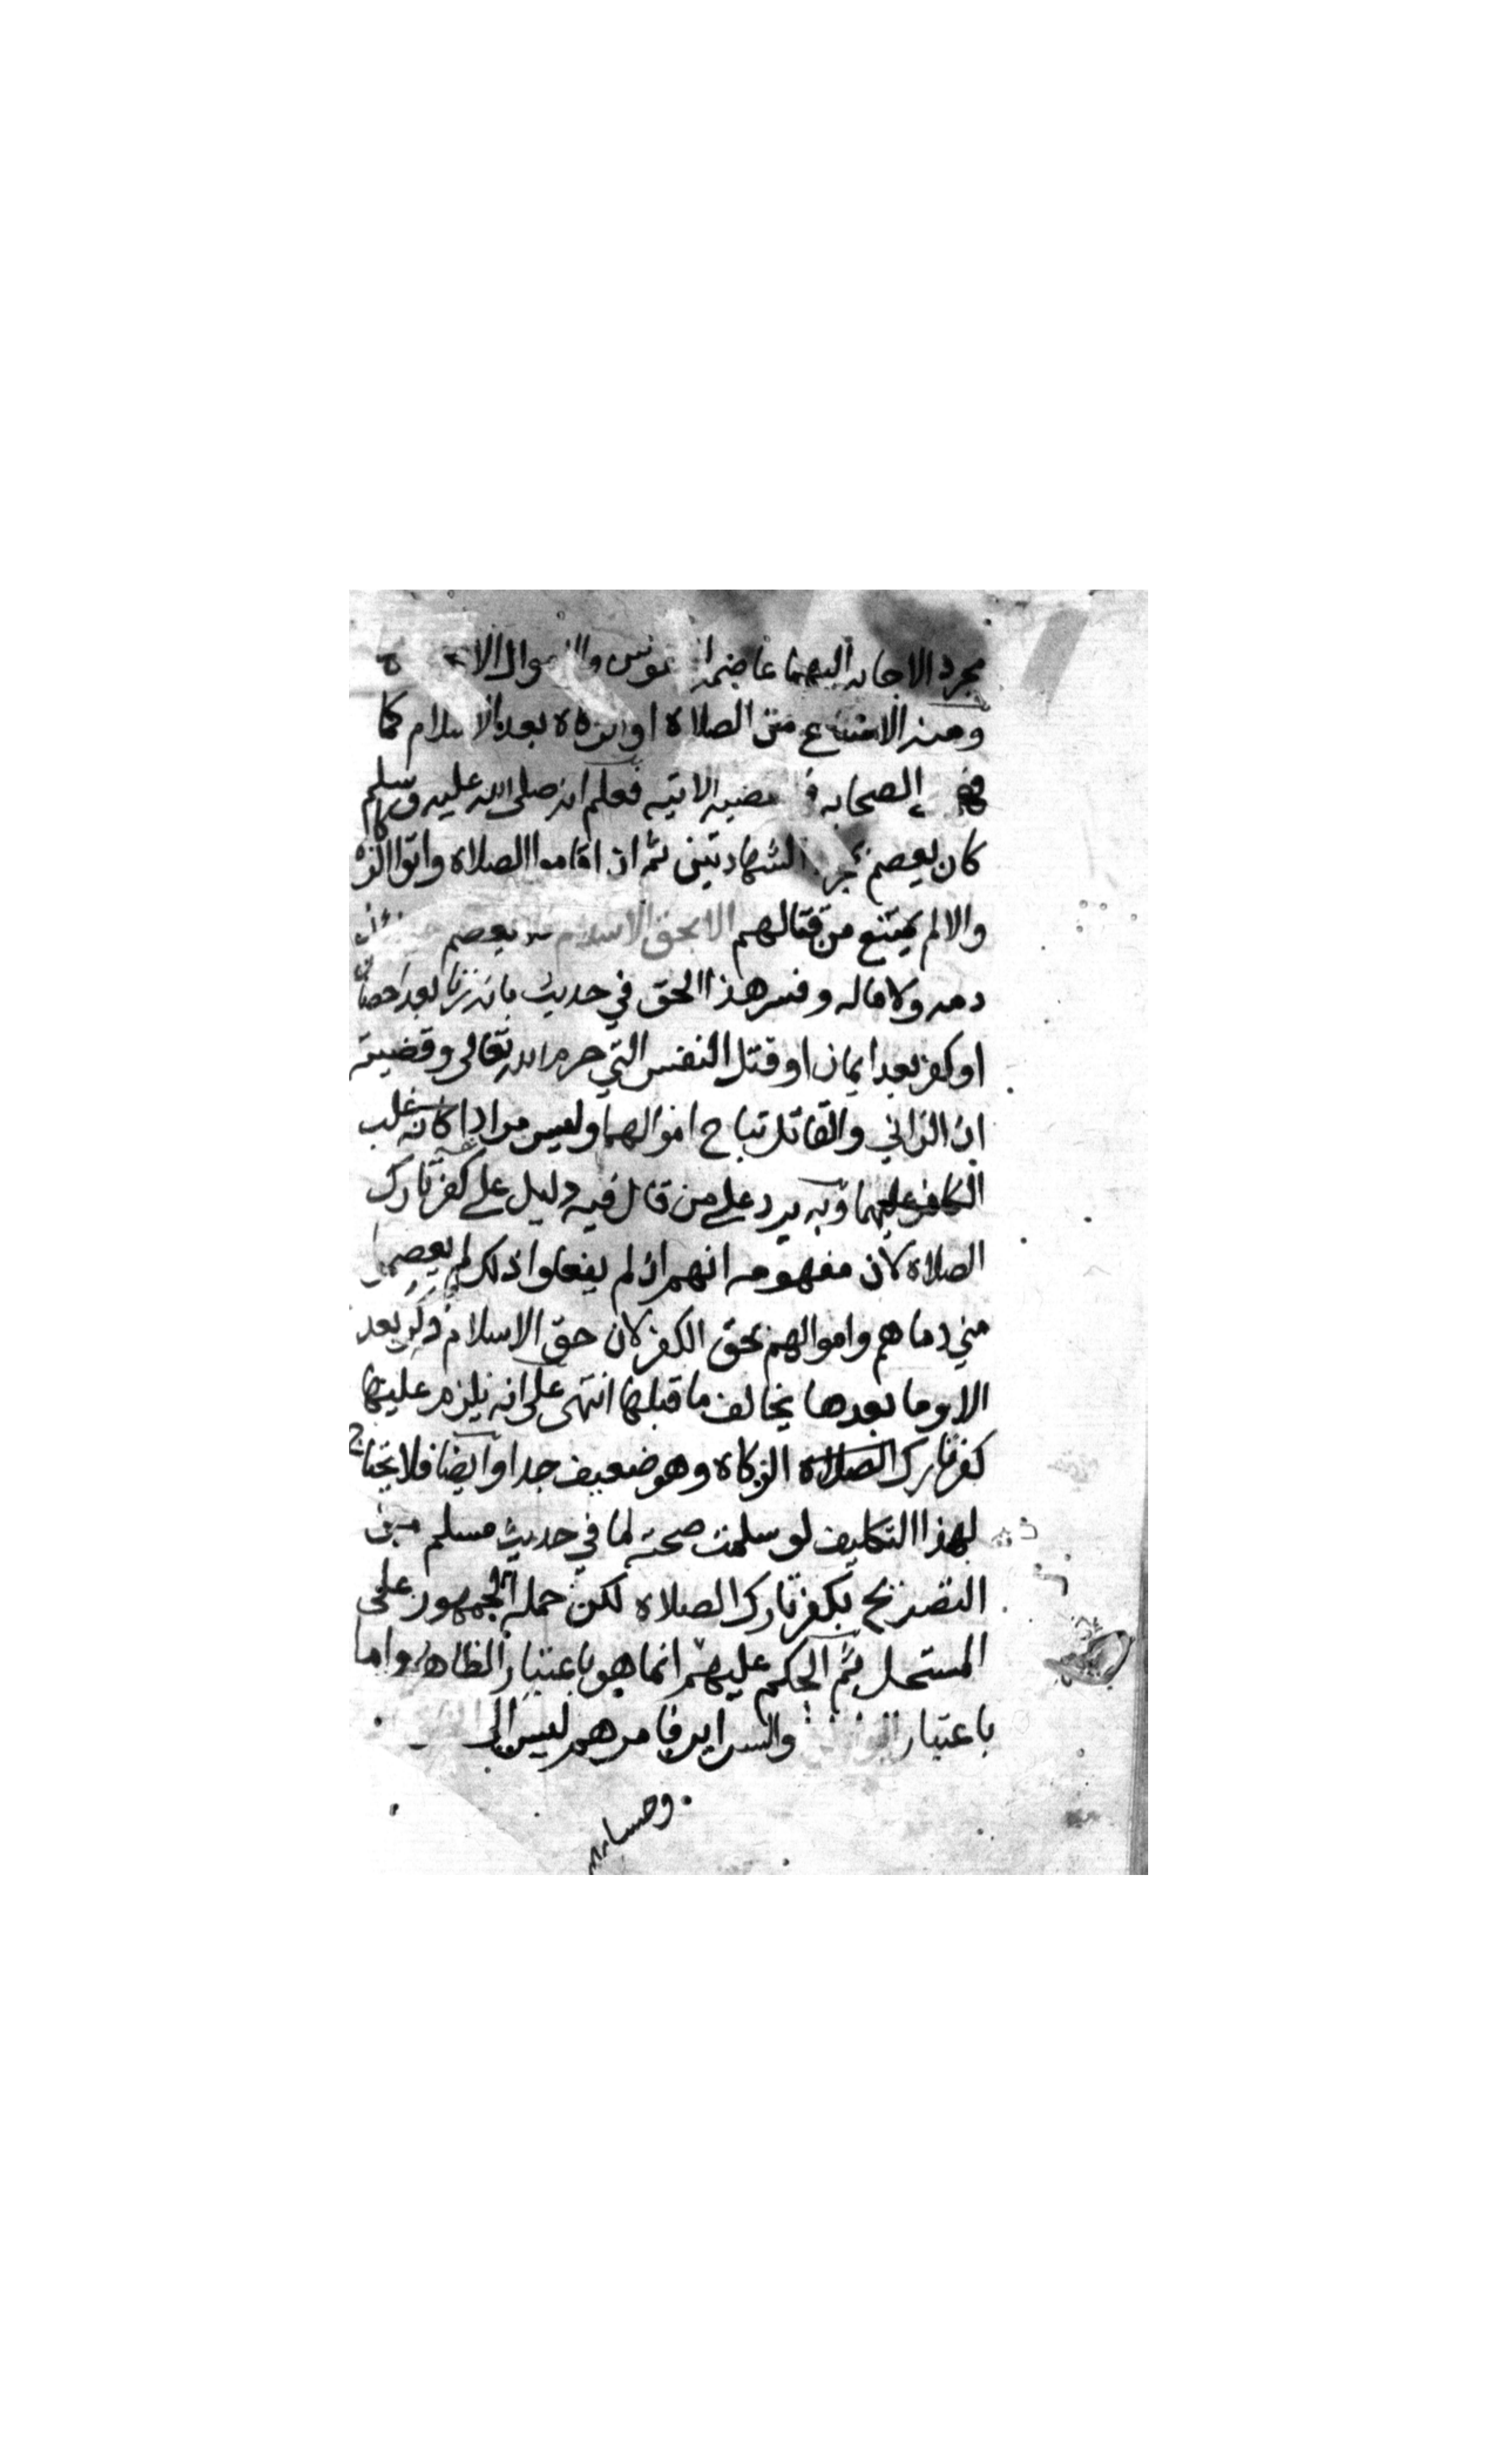 مجرد الاجابه اليهما عاصمة والاموال الا
ومنه الامتناع من الصلاة او الزكاة بعد الاسلام كما
فهم الصحابه الاتيه فعلم انه صلى الله عليه وسلم
كان يعصم بمجرد الشهادتين ثم ان اقاموا الصلاة واتوا الزكاة
والا لم يمتنع من قتالهم الا بحق الاسلام يعصم
دمه ولا ماله وفسر هذا الحق في حديث بانه زنا بعد احصان
او كفر بعد ايمان او قتل النفس التي حرم الله تعالى وقضيته
ان الزاني والقاتل تباح اموالهما وليس مرادا كانه غلب
الكافر عليهما وبه يرد على من قال فيه دليل على كفر تارك
الصلاة لان مفهومه انهم اذا لم يفعلوا ذلك لم يعصموا
مني دماهم واموالهم بحق الكفر لان حق الاسلام ذكر بعد
الا وما بعدها يخالف ما قبلها انتهى على انه يلزم عليها
كفر تارك الزكاة وهو ضعيف جدا وايضا فلا يحتاج
لهذا التكليف لو سلمت صحته لما في حديث مسلم من
التصريح بكفر تارك الصلاة لكن حمله الجمهور على
المستحل ثم الحكم عليهم انما هو باعتبار الظاهر واما
باعتبار والسراير فامرهم ليس الى
وحسابهم